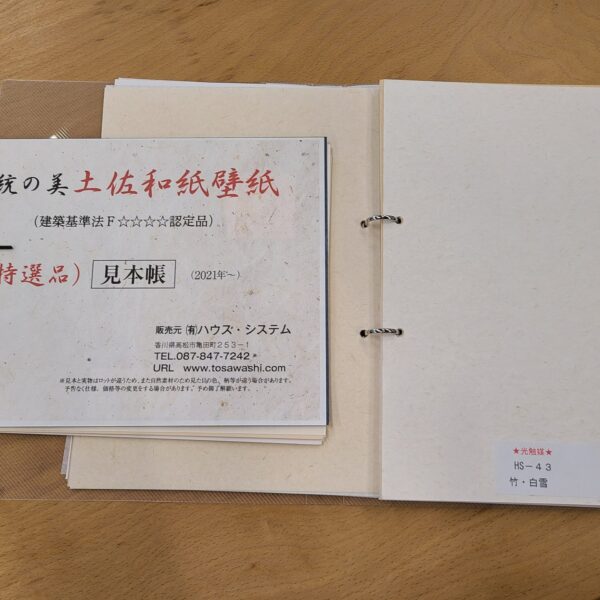 統の美 土佐和紙壁紙
(建築基準法F☆☆☆☆認定品)
特選品) 見本帳 (2021年~)
販売元 (有)ハウス・システム
香川県高松市亀田町253-1
TEL.087-847-7242
URL www.tosawashi.com
※見本と実物はロットが違うため、また自然素材のため見た目の色、柄等が違う場合があります。
予告なく仕様、価格等の変更をする場合があります。予め御了解願います。
★光触媒★
HS-43
竹・白雪